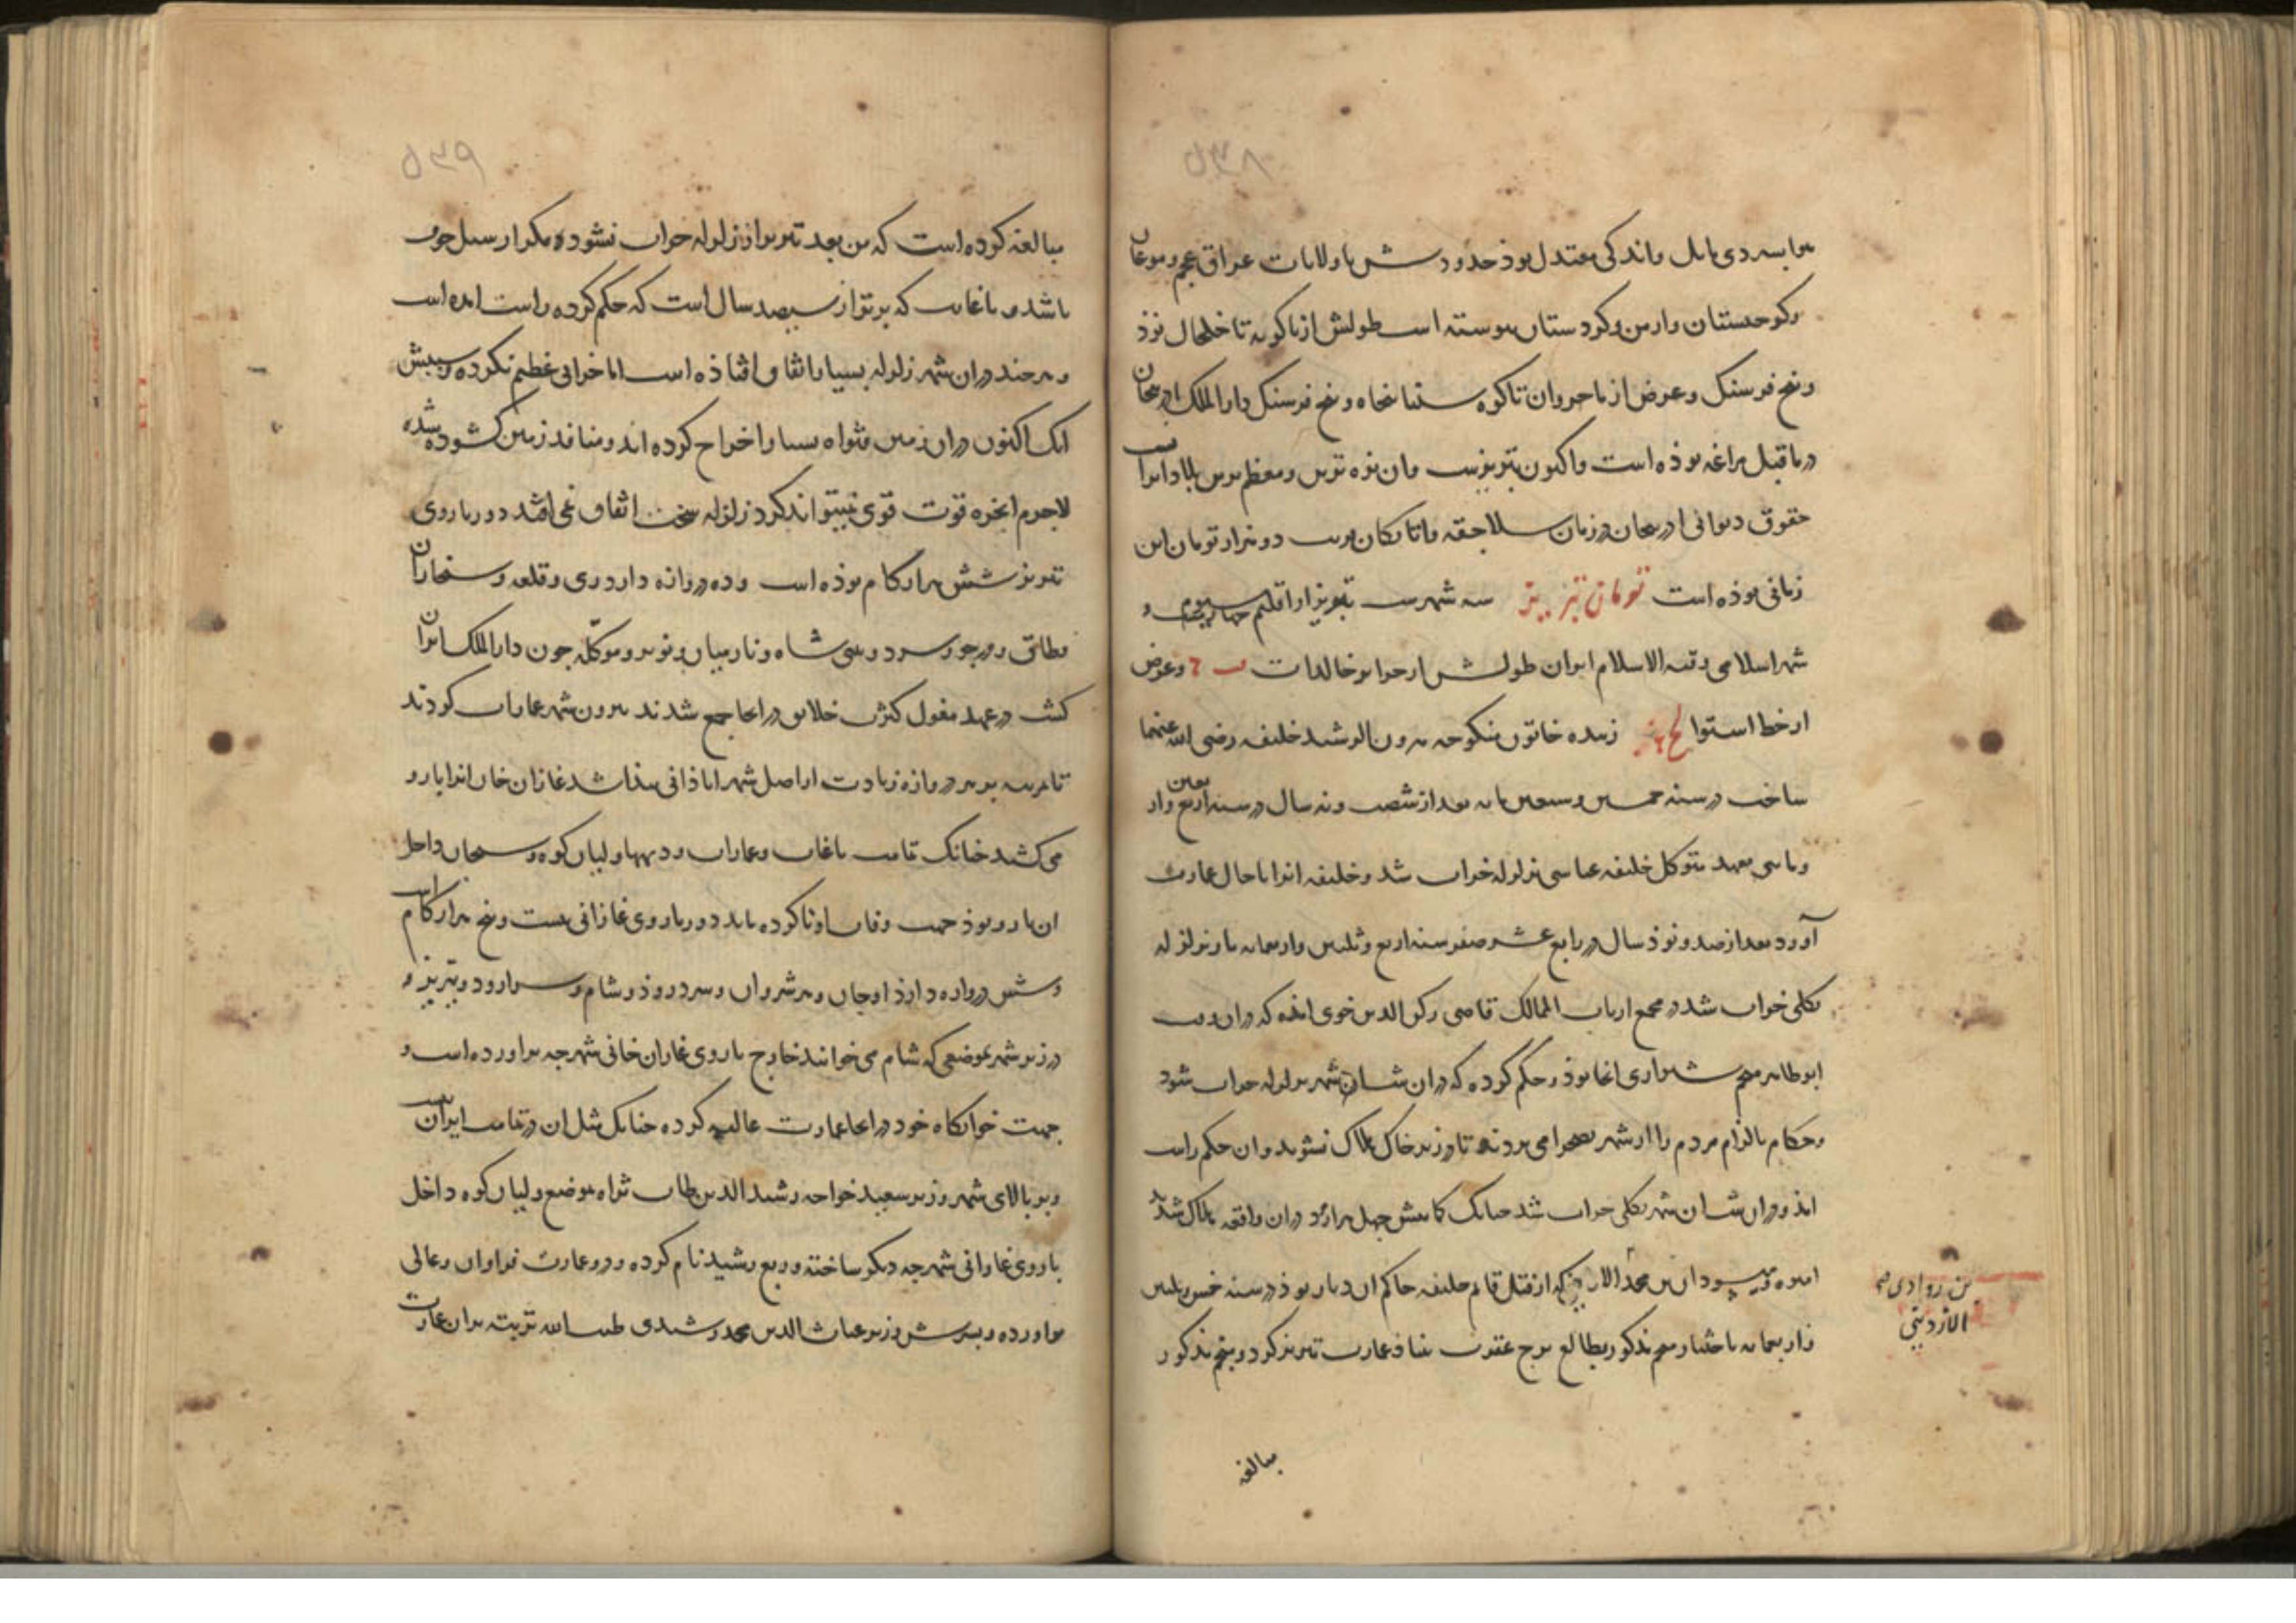 ۵۳۸
هوا بسردی مایل و اندکی معتدل بوذ حدودش با ولایات عراق عجم و موغان
و کرجستان و ارمن و کردستان پیوسته است طولش از باکویه تا خلخال نوذ
و پنج فرسنک و عرض از باجروان تا کوه سینا پنجاه و پنج فرسنک دار الملک اذربیجان
در ما قبل مراغه بوذه است و اکنون تبریزست و آن نزه ترین و معظم ترین بلاد ایرانست
حقوق دیوانی اذربیجان در زمان سلاجقه و اتابکان قریب دو هزار تومان این
زمانی بوذه است تومان تبریز سه شهرست تبریز از اقلیم چهارم است و
شهر اسلامی و قبة الاسلام ایران طولش از جزایر خالدات و عرض
از خط استوا لح زبیده خاتون منکوحه هرون الرشید خلیفه رضی الله عنهما
ساخت در سنه خمس و سبعین مایه بعد از شصت و نه سال در سنه اربع و اربعین
و مایتی بعهد متوکل خلیفه عباسی بزلزله خراب شد و خلیفه انرا با حال عمارت
آورد بعد از صد و نوذ سال در رابع عشر صفر سنه اربع و ثلثین و اربعمایه باز بزلزله
بکلی خراب شد در مجمع ارباب الممالک قاضی رکن الدین خوی امذه که در ان وقت
ابو طاهر منجم شیرازی انجا بوذ و حکم کرده که در فلان شب ان شهر بزلزله خراب شود
و حکام بالزام مردم را از شهر بصحرا می بردند تا در زیر خاک هلاک نشوند و ان حکم راست
امذ و در ان شب ان شهر بکلی خراب شد چنانک کمابیش چهل هزار مرد در ان واقعه هلاک شدند
امیر وهسودان بن محمد که از قبل قایم خلیفه حاکم ان دیار بوذ در سنه خمس و ثلثین
و اربعمایه باختیار منجم مذکور بطالع برج عقرب بنیاد عمارت تبریز کرد و منجم مذکور
بن روادی صح
الازدیی
مبالغه
۵۳۹
مبالغه کرده است که من بعد تبریز از زلزله خراب نشود مکر از سیل خوف
باشد و تا غایت که برتر از سیصد سال است که حکم کرده راست امده است
و هر چند در ان شهر زلزله بسیار اتفاق افتاذه است اما خرابی عظیم نکرده و سببش
انک اکنون در ان زمین قنوات بسیار اخراج کرده اند و منافذ زمین کشوده شده
لاجرم ابخره قوت قوی نمیتواند کرد زلزله سخت اتفاق نمی افتد دور باروی
تبریز شش هزار کام بوذه است و ده دروازه دارد ری و قلعه و سنجاران
و طاق و درجو و سرد و دستی شاه و نارمیان و نوبر و موکله چون دار الملک ایران
کشت در عهد مغول کثرت خلایق در انجا جمع شدند بیرون شهر عمارات کردند
تا بمرتبه بر هر دروازه زیادت از اصل شهر اباذانی پیذا شد غازان خان انرا بارو
می کشید چنانک تمامت باغات و عمارات و دیهها ولیان کوه و سنجان داخل
ان بارو بوذ جهت وفات او ناکرده بماند دور باروی غازانی بیست و پنج هزار کام است
و شش دروازه دارد اوجان و اهر شروان و سردروذ و شام و سراورود و تبریز و
در زیر شهر بموضعی که شام می خوانند خارج باروی غازان خانی شهرچه براورده است و
جهت خوابکاه خود در انجا عمارت عالیه کرده چنانک مثل ان در تمامت ایران نیست
و بر بالای شهر وزیر سعید خواجه رشید الدین طاب ثراه بموضع ولیان کوه داخل
باروی غازانی شهرچه دیکر ساخته و ربع رشید نام کرده و درو عمارت فراوان و عالی
براورده و پسرش وزیر غیاث الدین محمد رشیدی طیب الله تربته بران عمارت